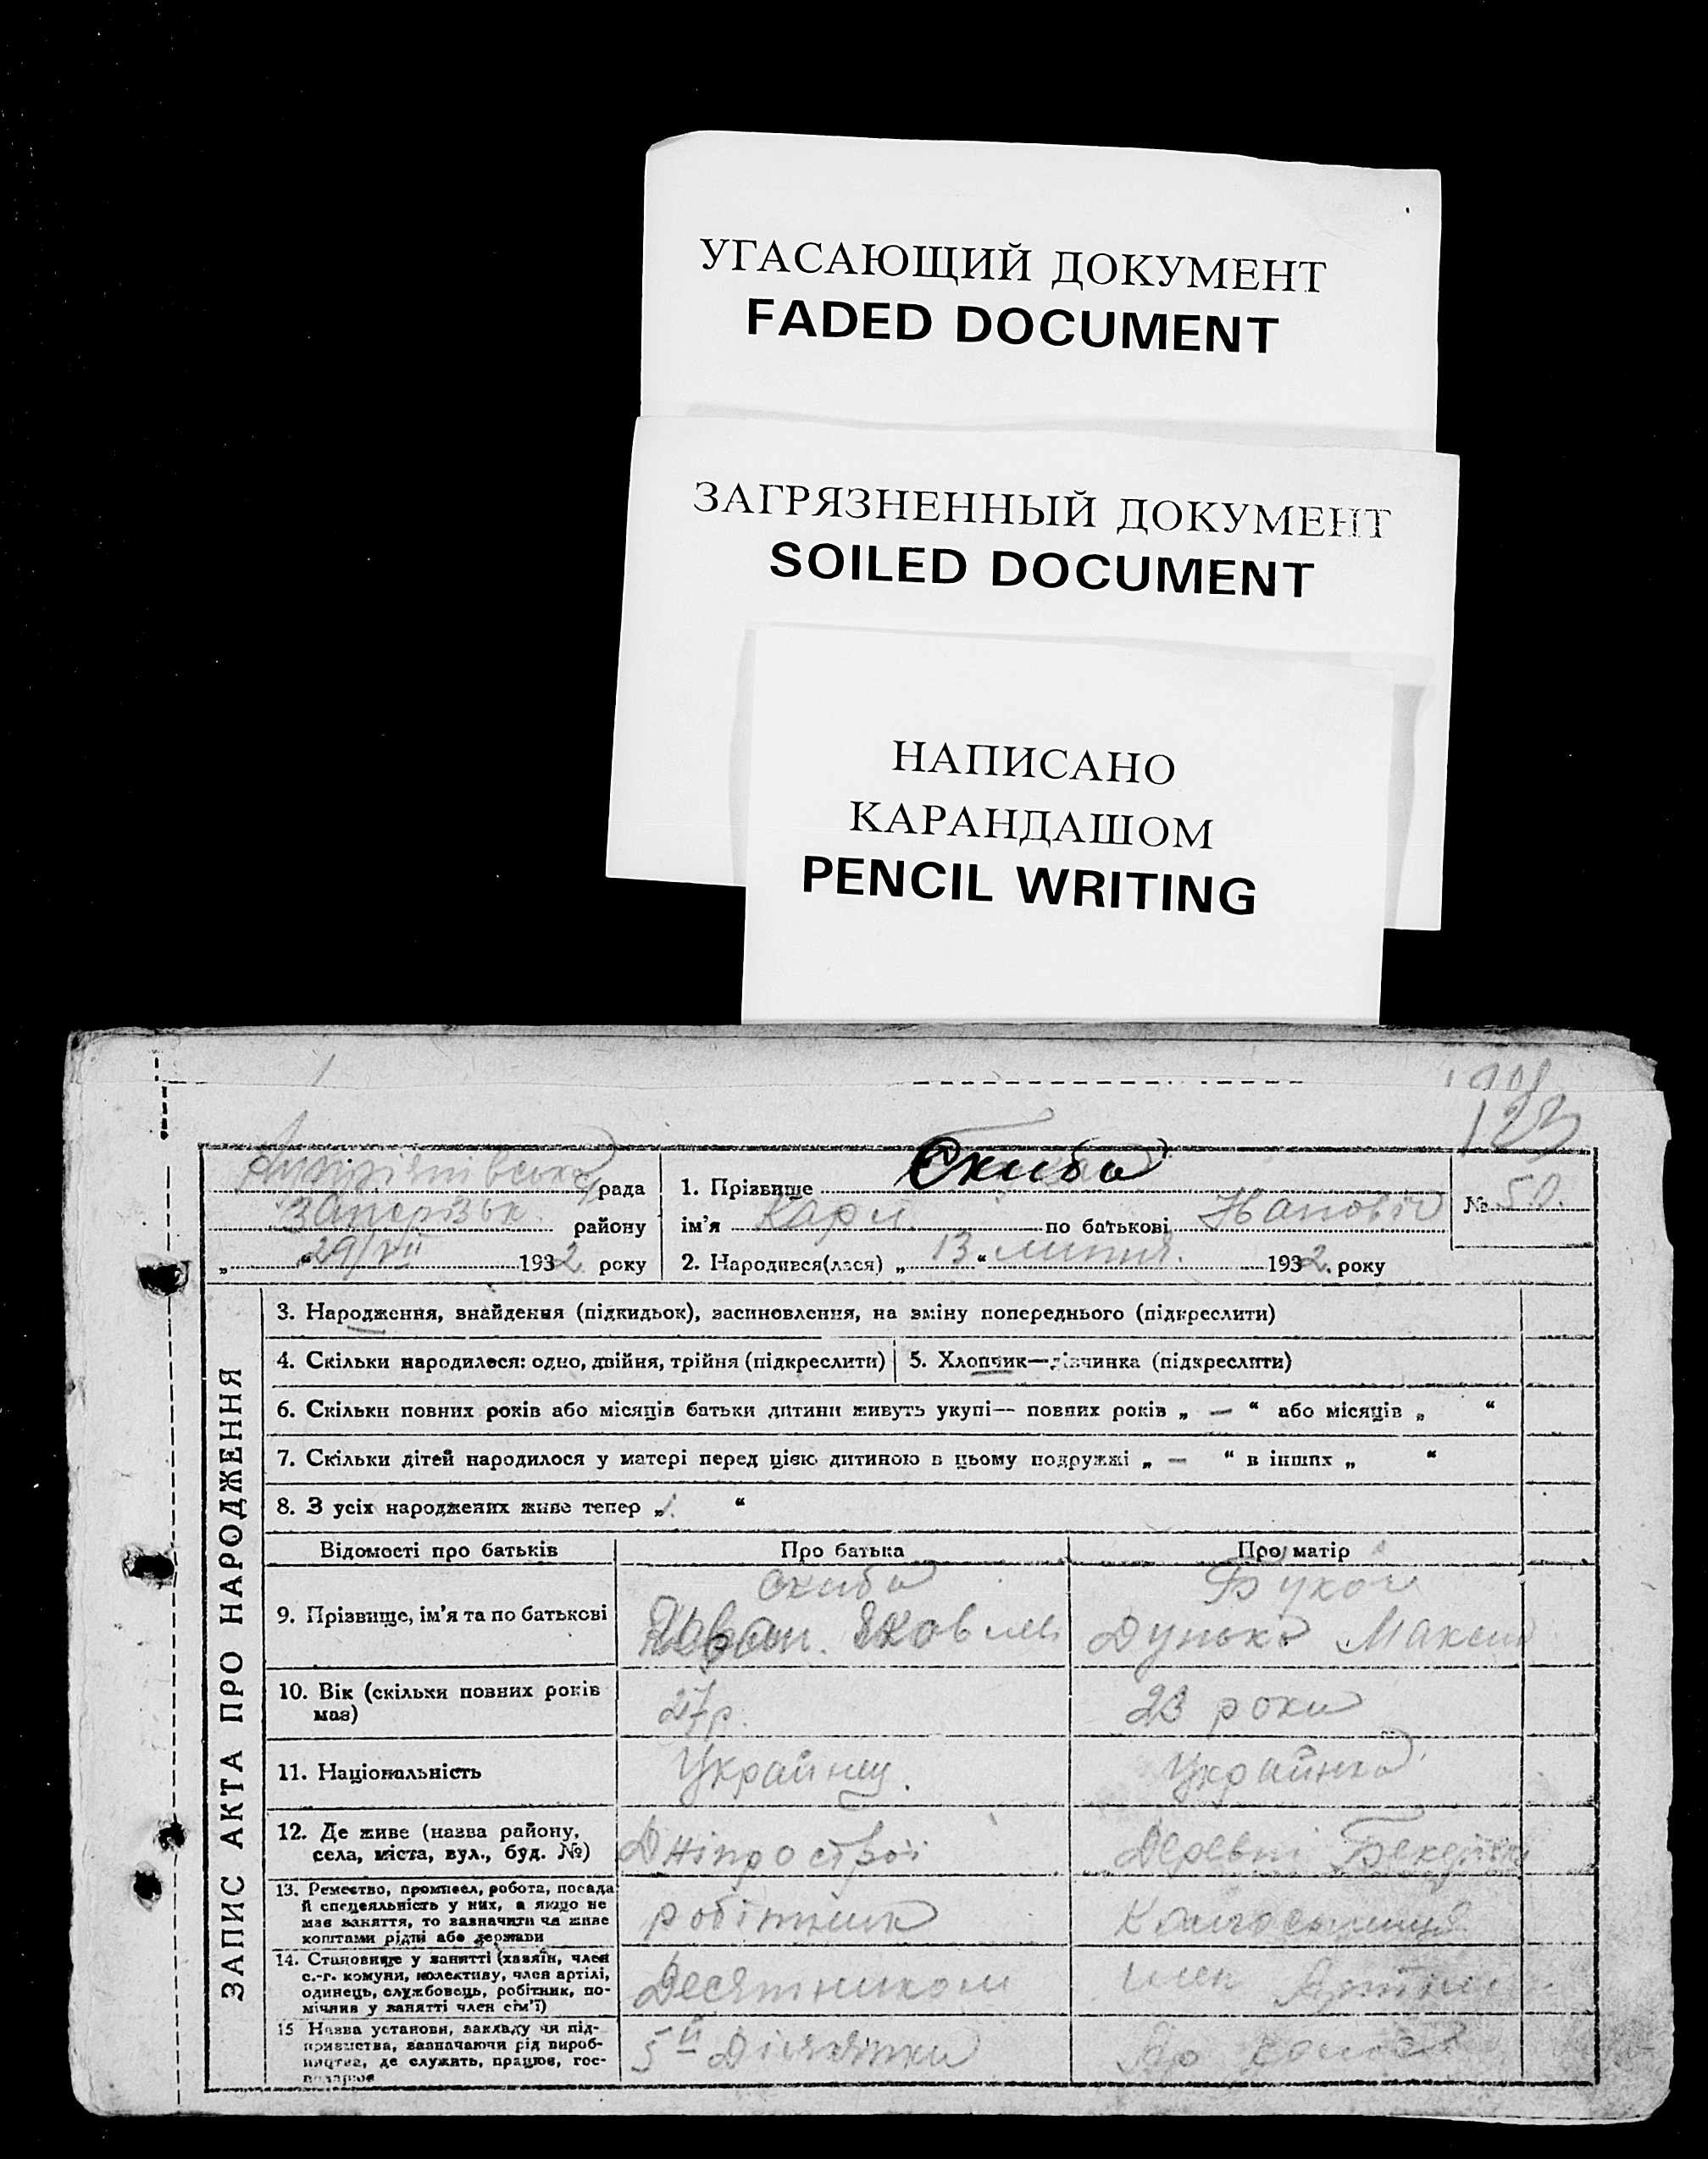 УГАСАЮЩИЙ ДОКУМЕНТ
FADED DOCUMENT
ЗАГРЯЗНЕННЫЙ ДОКУМЕНТ
SOILED DOCUMENT
НАПИСАНО
КАРАНДАШОМ
PENCIL WRITING
123
рада
Запорізьк. району
„29/VII“ 1932 року
1. Прізвище Скиба
ім'я Карл по батькові
2. Народився(лася) „13“ липня 1932 року
№ 50.
ЗАПИС АКТА ПРО НАРОДЖЕННЯ
3. Народження, знайдення (підкидьок), засиновлення, на зміну попереднього (підкреслити)
4. Скільки народилося: одно, двійня, трійня (підкреслити)
5. Хлопчик—дівчинка (підкреслити)
6. Скільки повних років або місяців батьки дитини живуть укупі— повних років „ — “ або місяців „ “
7. Скільки дітей народилося у матері перед цією дитиною в цьому подружжі „ — “ в інших „ “
8. З усіх народжених живе тепер „ “
Відомості про батьків
Про батька
Про матір
9. Прізвище, ім'я та по батькові
Скиба
Яковл
Дунька Макси
10. Вік (скільки повних років
має)
27 р.
23 роки
11. Національність
Українец.
Українка
12. Де живе (назва району,
села, міста, вул., буд. №)
Дніпрострой
Деревні
13. Ремество, промисел, робота, посада
й спецеяльність у них, а якщо не
має заняття, то зазначити чи живе
коштами рідні або держави
робітник
14. Становище у занятті (хазяїн, член
с.-г. комуни, колективу, член артілі,
одинець, службовець, робітник, по-
мічник у занятті член сім'ї)
Десятником
член Артили
15 Назва установи, закладу чи під-
приємства, зазначаючи рід вироб-
ництва, де служить, працює, гос-
подарює
5й Дільниці